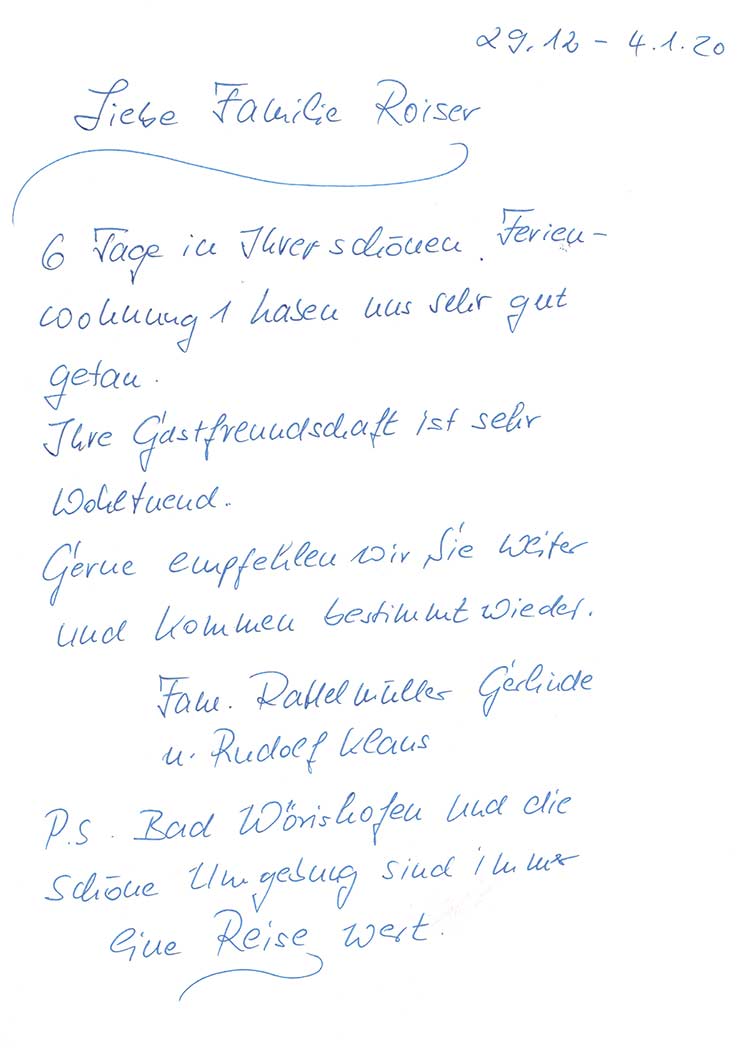 29.12 - 4.1.20
Liebe Familie Roiser
6 Tage in Ihrer schönen Ferien-
wohnung 1 haben uns sehr gut
getan.
Ihre Gastfreundschaft ist sehr
Wohltuend.
Gerne empfehlen wir Sie weiter
und kommen bestimmt wieder.
Fam. Gerlinde
u. Rudolf Klaus
P.S. Bad Wörishofen und die
schöne Umgebung sind immer
eine Reise wert.